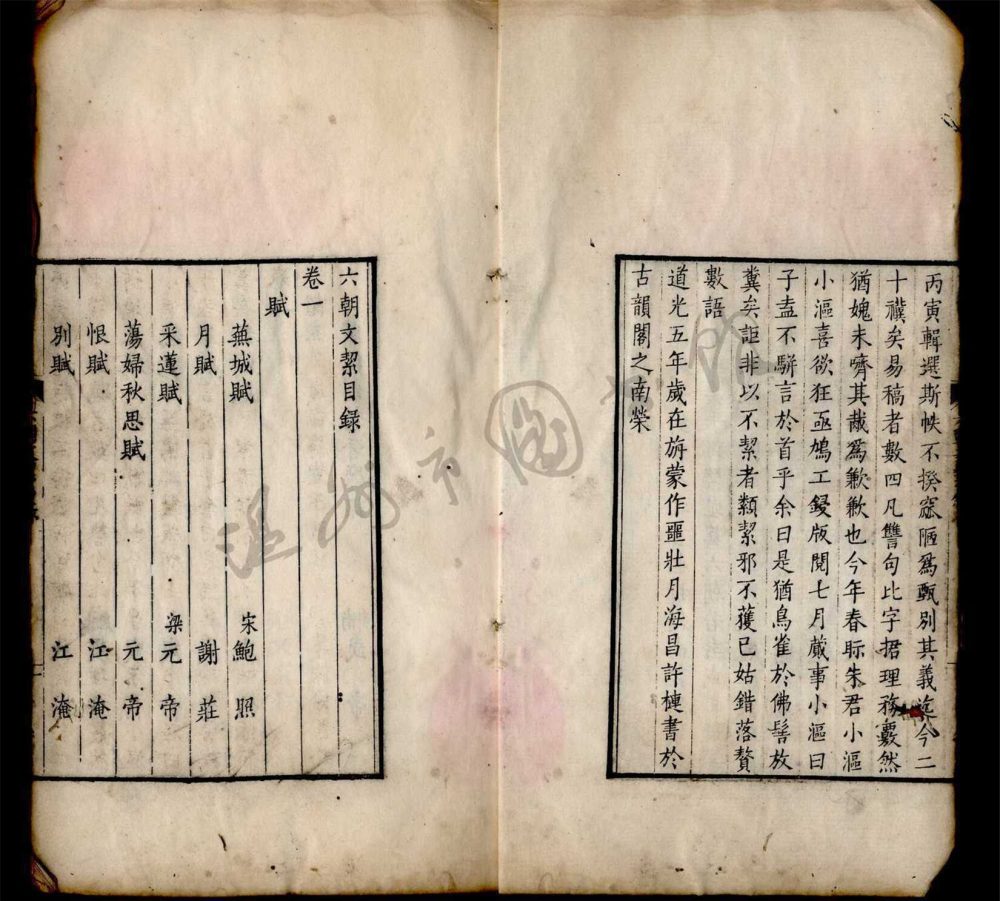 丙寅輯選斯帙不揆窳陋爲甄別其義迄今二
十禩矣易稿者數四凡讐句比字捃理務覈然
猶媿未嚌其胾爲歉歉也今年春眎朱君小漚
小漚喜欲狂亟鳩工鋟版閱七月蕆事小漚曰
子盍不駢言於首乎余曰是猶鳥雀於佛髻放
糞矣詎非以不絜者纇絜邪不獲已姑錯落贅
數語
道光五年歲在旃蒙作噩壯月海昌許槤書於
古韻閣之南榮
六朝文絜目錄
卷一
賦
蕪城賦 宋鮑照
月賦 謝莊
采蓮賦 梁元帝
蕩婦秋思賦 元帝
恨賦 江淹
別賦 江淹
溫州市圖